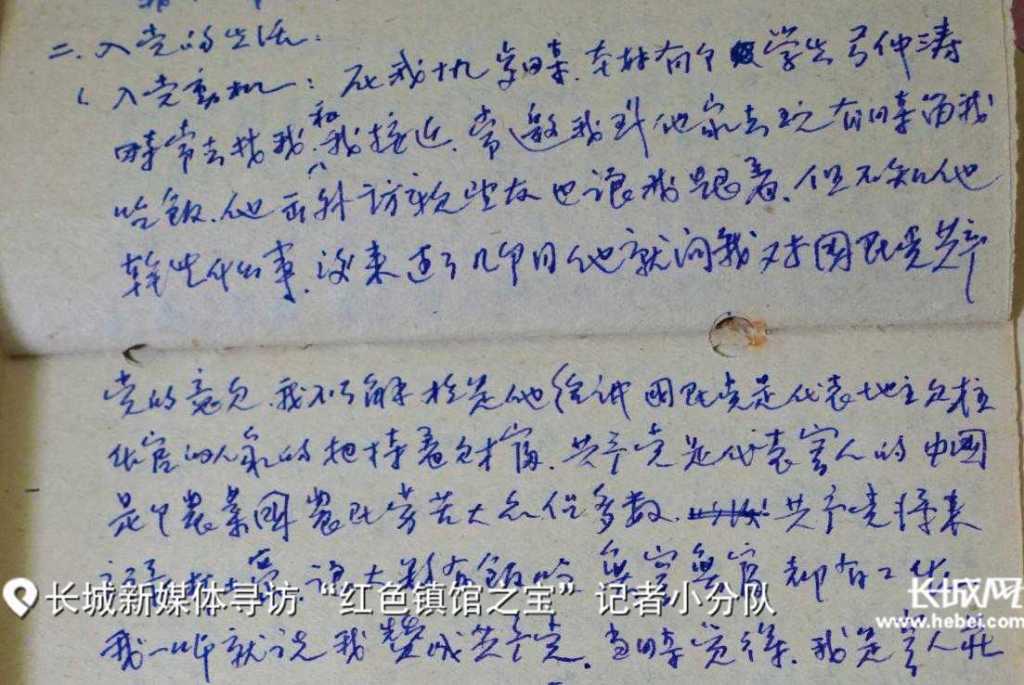 二.入党的生活.
入党动机:在我十九岁时.本村有个学生弓仲涛
时常去找我和我接近.常邀我到他家去玩有时叫我
吃饭.他出外访亲些友也让我跟着.但不知他
干些什么事.后来过了几个月他就问我对国民党共产
党的意见.我不了解于是他给讲国民党是代表地主
官的人家的把持着.共产党是代表穷人的中国
是个农业国农民劳苦大众占多数.共产党将来
让大家有饭吃 无穷无官 都有工作
我一听就说我赞成共产党.当时觉得.我是穷人
长城新媒体寻访“红色镇馆之宝”记者小分队
长城网
www.hebei.com